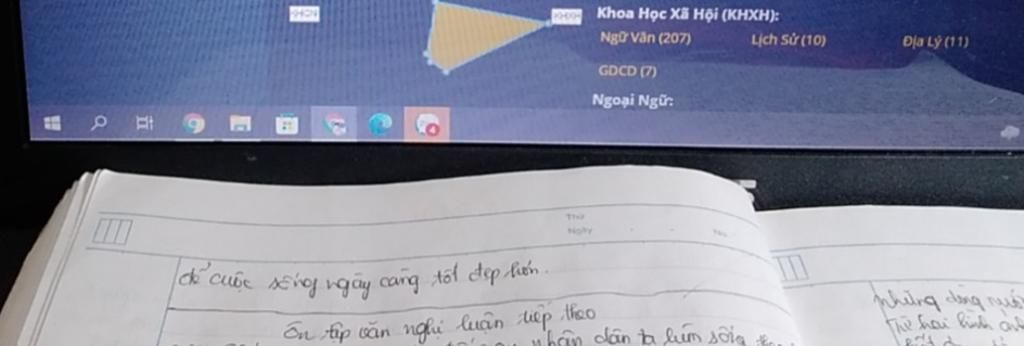 KHCN
KHXH
Khoa Học Xã Hội (KHXH):
Ngữ Văn (207) Lịch Sử (10) Địa Lý (11)
GDCD (7)
Ngoại Ngữ:
4
Thứ
Ngày No
để cuộc sống ngày càng tốt đẹp hơn.
Ôn tập văn nghị luận tiếp theo
nhân dân ta
những dòng
Từ hai hình